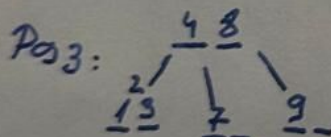 Pos3: 4 8
2
1 3 7 9